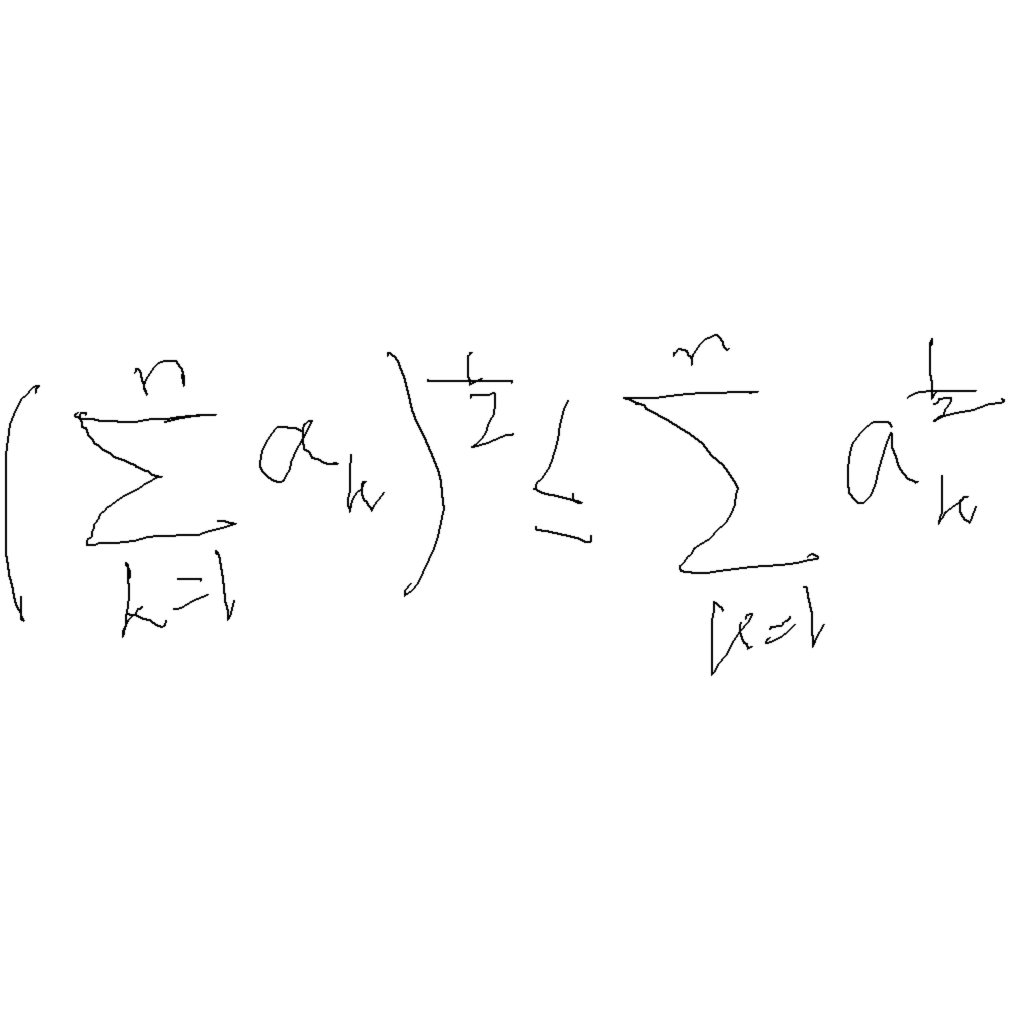 \left( \sum_{k=1}^{n} a_k \right)^{\frac{1}{2}} \leq \sum_{k=1}^{n} a_k^{\frac{1}{2}}